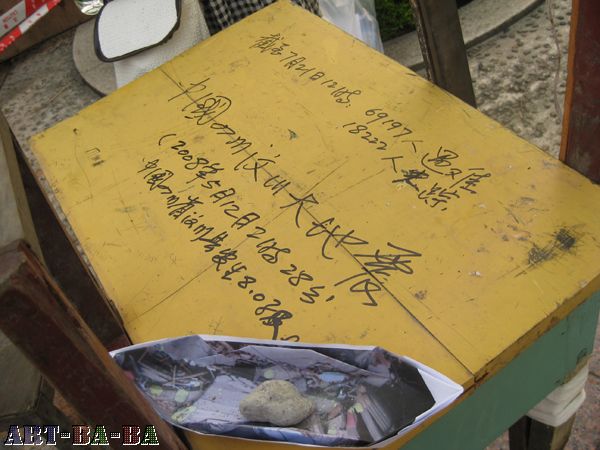 截至7月21日12时,
69197人遇难
18222人失踪,
中国四川汶川大地震
(2008年5月12日2时28分,
中国四川省汶川县发生8.0级
ART-BA-BA